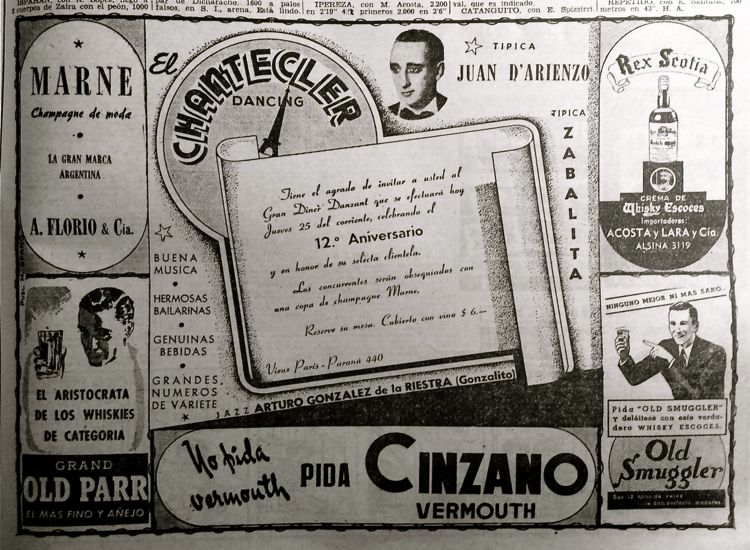 cuerpos de Zaira con el peón, 1000
par de Dicharacho. 1600 a palos
falsos, en S. I., arena. Está lindo.
IPEREZA, con M. Acosta, 2.200
en 2'19" 4/5 primeros 2.000 en 2'6"
val, que es indicado.
CATANGUITO, con E. Spizzirri.
metros en 43". H. A.
MARNE
Champagne de moda
LA GRAN MARCA
ARGENTINA
A. FLORIO & Cía.
EL ARISTOCRATA
DE LOS WHISKIES
DE CATEGORIA
GRAND
OLD PARR
EL MAS FINO Y AÑEJO
El
CHANTECLER
DANCING
TIPICA
JUAN D'ARIENZO
TIPICA
ZABALITA
BUENA
MUSICA
HERMOSAS
BAILARINAS
GENUINAS
BEBIDAS
GRANDES
NUMEROS
DE VARIETE
Tiene el agrado de invitar a usted al
Gran Diner Danzant que se efectuará hoy
Jueves 25 del corriente, celebrando el
12.º Aniversario
y en honor de su selecta clientela.
Los concurrentes serán obsequiados con
una copa de champagne Marne.
Reserve su mesa. Cubierto con vino $ 6.—
Vieux París - Paraná 440
JAZZ ARTURO GONZALEZ de la RIESTRA (Gonzalito)
No pida
vermouth
PIDA CINZANO
VERMOUTH
Rex Scotia
CREMA DE
Whisky Escoces
Importadores:
ACOSTA y LARA y Cía.
ALSINA 3119
NINGUNO MEJOR NI MAS SANO
Pida "OLD SMUGGLER"
y deléitese con este verda-
dero WHISKY ESCOCES.
Old
Smuggler